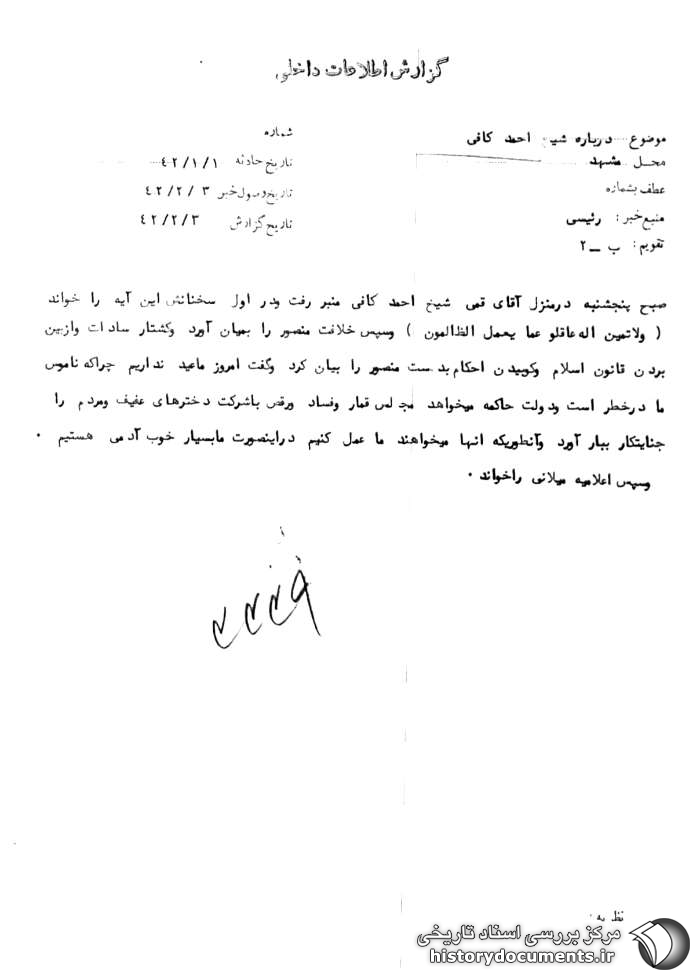 گزارش اطلاعات داخلی
موضوع درباره شیخ احمد کافی
محل مشهد
عطف بشماره
منبع خبر : رئیسی
تقویم : ب ــ ۲
شماره
تاریخ حادثه ۴۲/۱/۱
تاریخ وصول خبر ۴۲/۲/۳
تاریخ گزارش ۴۲/۲/۳
صبح پنجشنبه درمنزل آقای قمی شیخ احمد کافی منبر رفت ودر اول سخنانش این آیه را خواند
( ولاتمین اله عاقلو عما یعمل الظالمون ) وسپس خلافت منصور را بمیان آورد وکشتار سادات وازبین
بردن قانون اسلام وکوبیدن احکام بدست منصور را بیان کرد وگفت امروز ماعید نداریم چراکه ناموس
ما درخطر است ودولت حاکمه میخواهد مجلس قمار وفساد ورقص باشرکت دخترهای عفیف ومردم را
جنایتکار ببار آورد وآنطوریکه انها میخواهند ما عمل کنیم دراینصورت مابسیار خوب آدمی هستیم .
وسپس اعلامیه میلانی راخواند .
نظریه :
مرکز بررسی اسناد تاریخی
historydocuments.ir